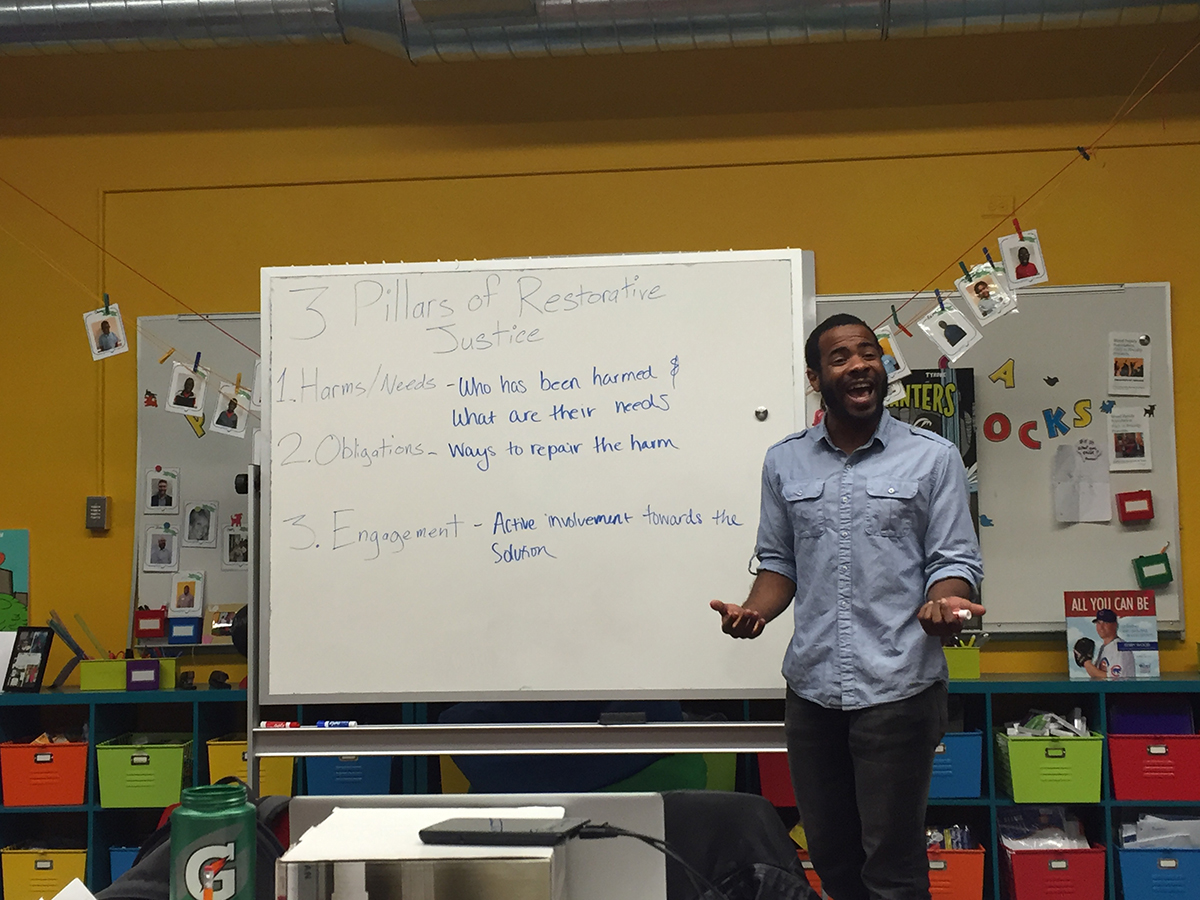 3 Pillars of Restorative
Justice
1. Harms/Needs - Who has been harmed &
What are their needs
2. Obligations - Ways to repair the harm
3. Engagement - Active involvement towards the
Solution
A
OCKS
ALL YOU CAN BE
G